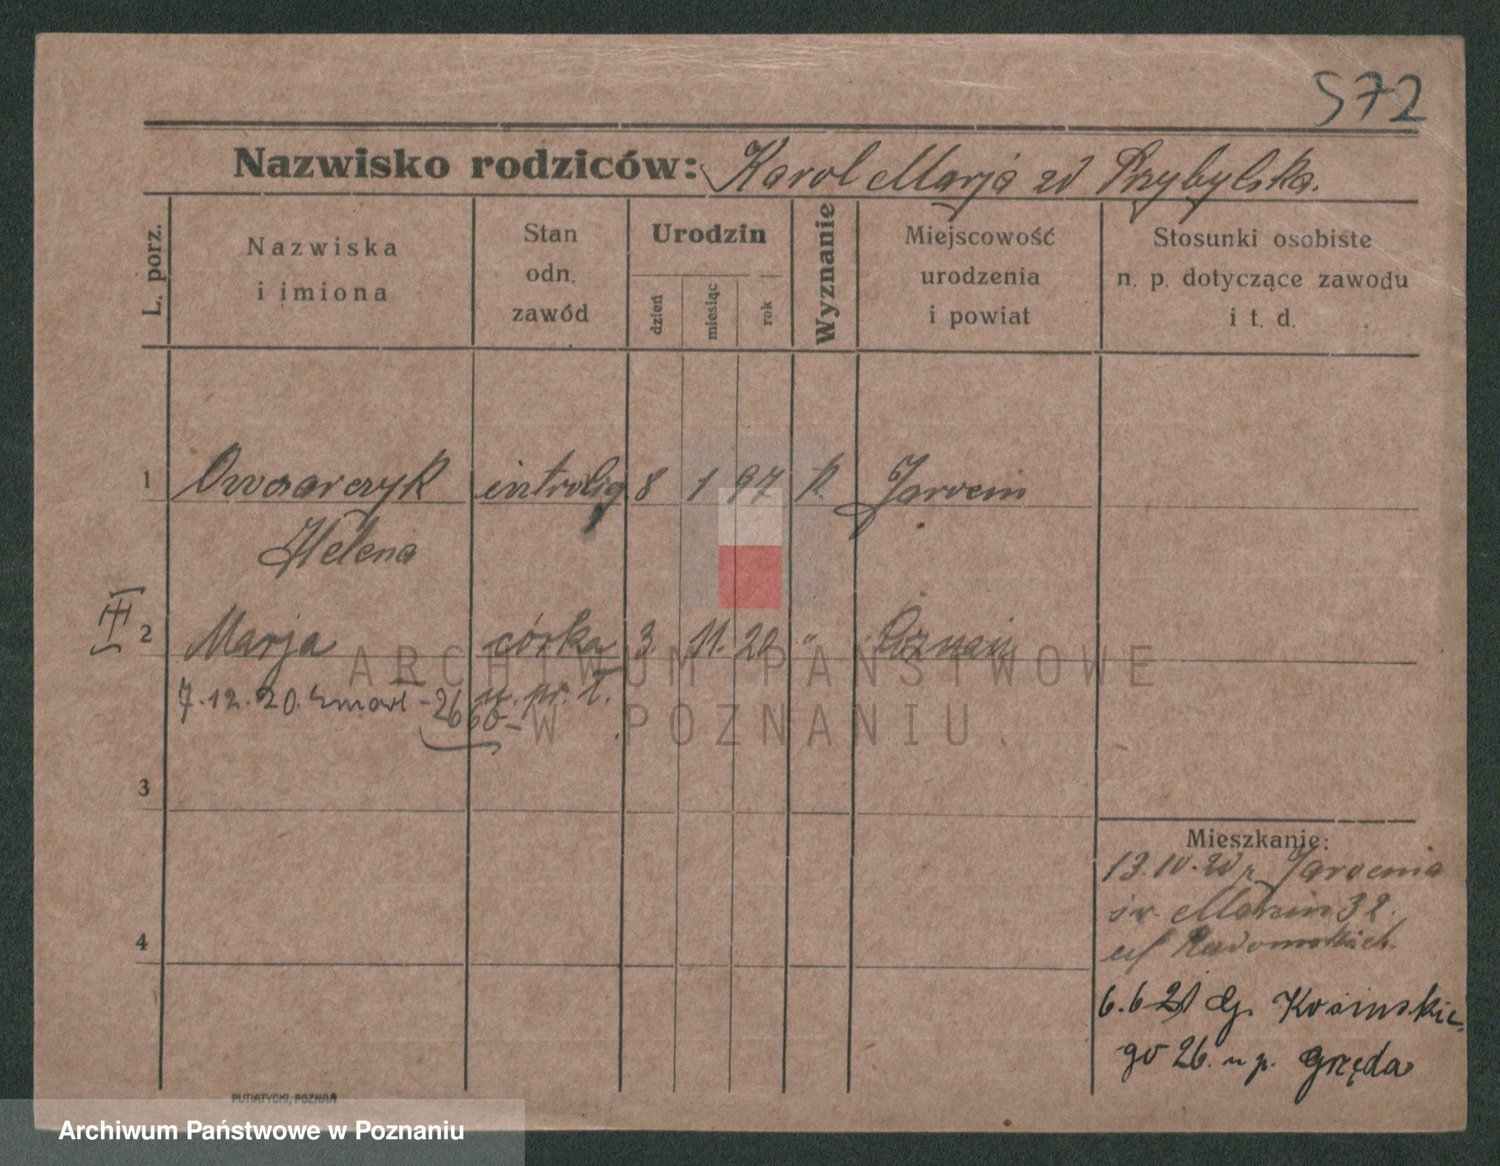 572
Nazwisko rodziców: Karol Marja zd Przybylska.
L. porz.
Nazwiska
i imiona
Stan
odn.
zawód
Urodzin
dzień
miesiąc
rok
Wyznanie
Miejscowość
urodzenia
i powiat
Stosunki osobiste
n. p. dotyczące zawodu
i t. d.
1 Owczarczyk introlig 8 1 97 k. Jarocin
Helena
III
2 Marja córka 3. 11. 20 " Poznań
7.12.20. zmarł - 2660- n. pr. T.
3
Mieszkanie:
13.10.20 z Jarocina
św. Marcin 32.
4
6.6 21 Kosinskie
go 26. u p. Grzęda
PUTIATYCKI, POZNAŃ
ARCHIWUM PAŃSTWOWE
W POZNANIU
Archiwum Państwowe w Poznaniu